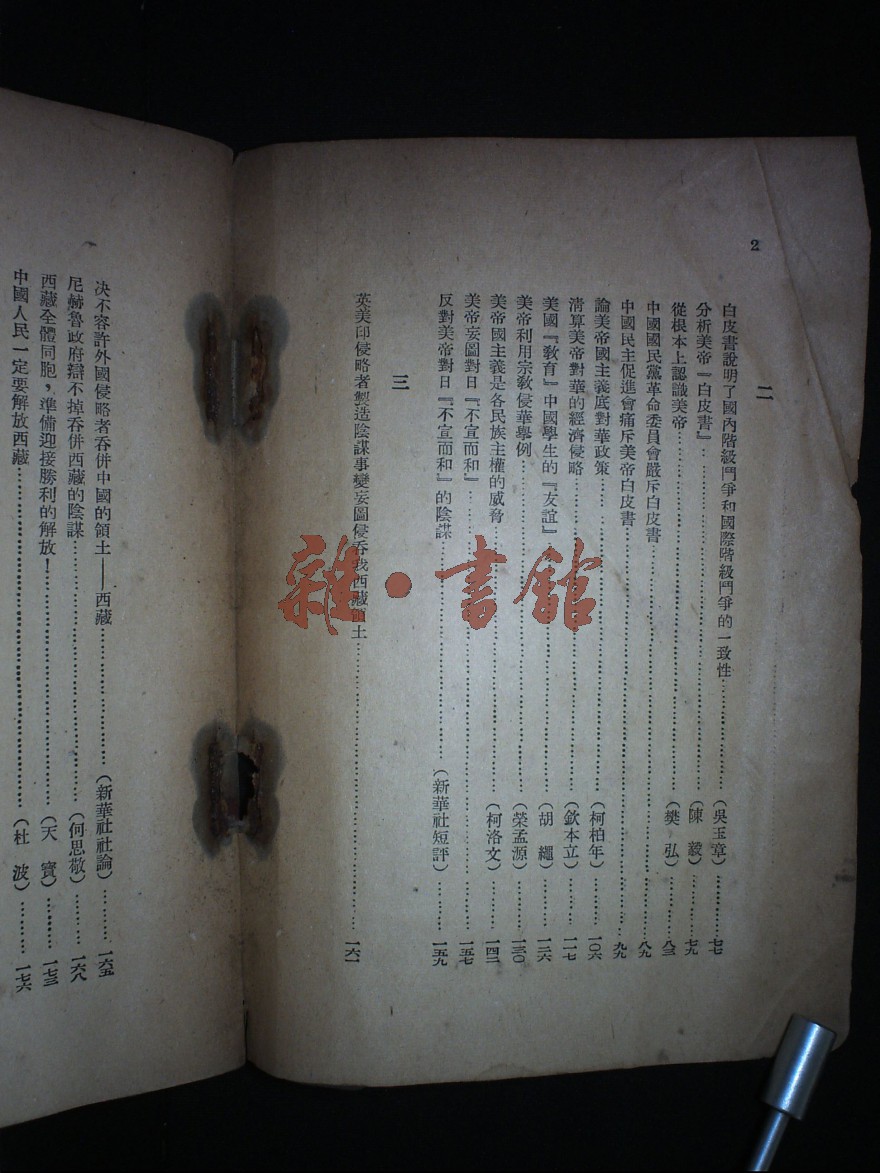 2
二
白皮書說明了國內階級鬥爭和國際階級鬥爭的一致性……（吳玉章）……七七
分析美帝『白皮書』……（陳　毅）……七九
從根本上認識美帝……（樊　弘）……八三
中國國民黨革命委員會嚴斥白皮書……八九
中國民主促進會痛斥美帝白皮書……九九
論美帝國主義底對華政策……（柯柏年）……一〇六
清算美帝對華的經濟侵略……（欽本立）……一一七
美國『教育』中國學生的『友誼』……（胡　繩）……一二六
美帝利用宗教侵華舉例……（榮孟源）……一三〇
美帝國主義是各民族主權的威脅……（柯洛文）……一四二
美帝妄圖對日『不宣而和』……一五七
反對美帝對日『不宣而和』的陰謀……（新華社短評）……一五九
三
英美印侵略者製造陰謀事變妄圖侵吞我西藏領土……一六一
決不容許外國侵略者吞併中國的領土——西藏……（新華社社論）……一六五
尼赫魯政府辯不掉吞併西藏的陰謀……（何思敬）……一六八
西藏全體同胞，準備迎接勝利的解放！……（天　寶）……一七三
中國人民一定要解放西藏……（杜　波）……一七六
雜·書館